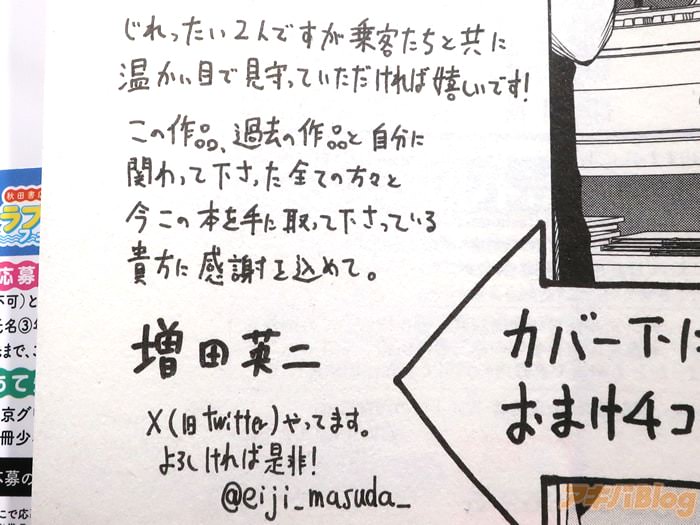 じれったい2人ですが乗客たちと共に
温かい目で見守っていただければ嬉しいです!
この作品、過去の作品と自分に
関わって下さった全ての方々と
今この本を手に取って下さっている
貴方に感謝を込めて。
増田英二
X(旧twitter)やってます。
よろしければ是非!
@eiji_masuda_
カバー下に
おまけ4コ
秋田書店
ラブ
フェ
応募
不可)と
氏名③
まで、こ
京グ
冊少
応募の
こで応
アキバBlog